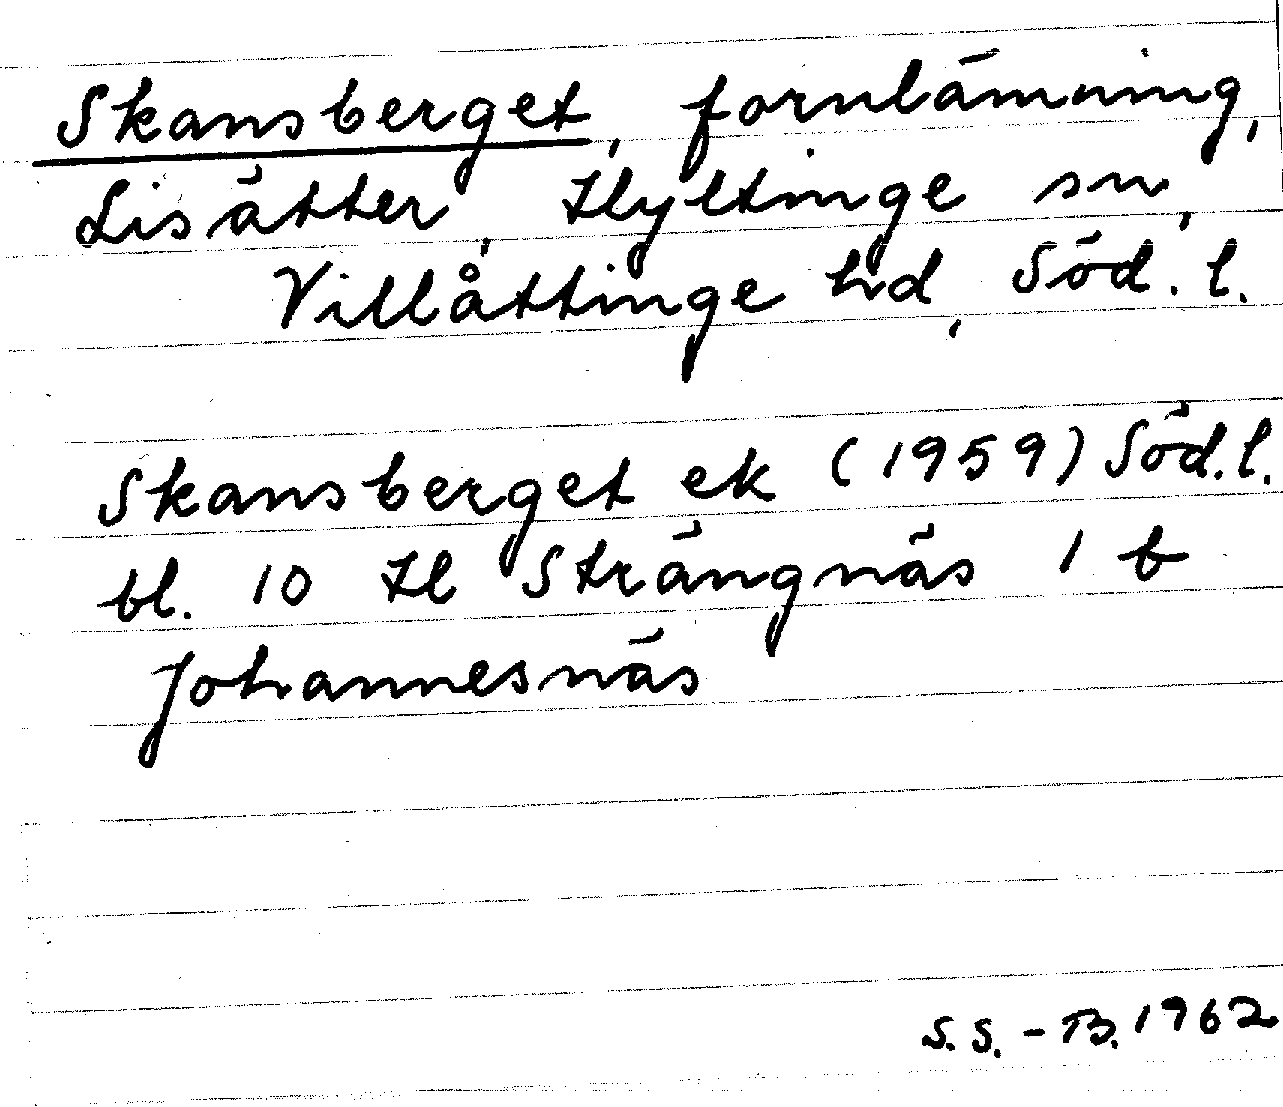 Skansberget, fornlämning,
Lisätter, Hyltinge sn,
Villåttinge hd, Söd. l.
Skansberget ek (1959) Söd. l.
bl. 10 H Strängnäs 1 b
Johannesnäs
S.S. - B. 1962